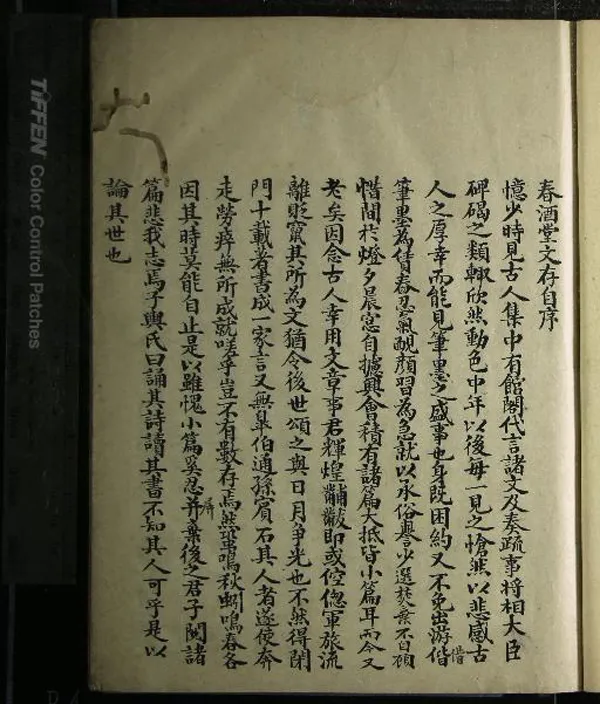 春酒堂文存自序
憶少時見古人集中有館閣代言諸文及奏疏事將相大臣
碑碣之類輙欣然動色中年以後每一見之愴然以悲感古
人之厚幸而能見筆墨之盛事也身既困約又不免出游偕
借
筆墨為賃舂忍氣靦顏習為急就以承俗譽少選焚棄不自顧
惜間於燈夕晨窓自攄興會積有諸篇大抵皆小篇耳而今又
老矣因念古人幸用文章事君輝煌黼黻即或倥偬軍旅流
離貶竄其所為文猶令後世頌之與日月爭光也不然得閉
門十載著書成一家言又無臯伯通孫賓石其人者遂使奔
走勞瘁無所成就嗟乎豈不有數存焉然蛩鳴秋蜩鳴春各
因其時莫能自止是以雖愧小篇奚忍并棄後之君子閱諸
屏
篇悲我志焉子輿氏曰誦其詩讀其書不知其人可乎是以
論其世也
TIFFEN Color Control Patches